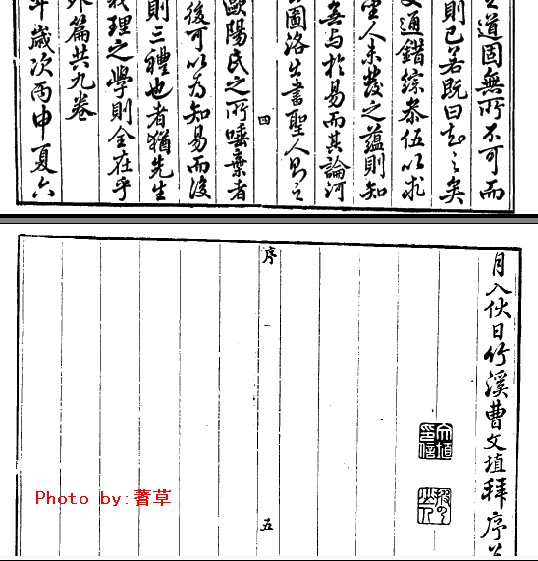 道固無所不可而
則已若既曰知之矣
通錯綜參伍以求
聖人未發之蘊則知
無与於易而其論河
圖洛出書聖人則之
四
歐陽氏之所唾棄者
後可以為知易而後
則三禮也者猶先生
義理之學則全在乎
外篇共九卷
年歲次丙申夏六
月入伏日竹溪曹文埴拜序
文埴印信
序
五
Photo by:蓍草